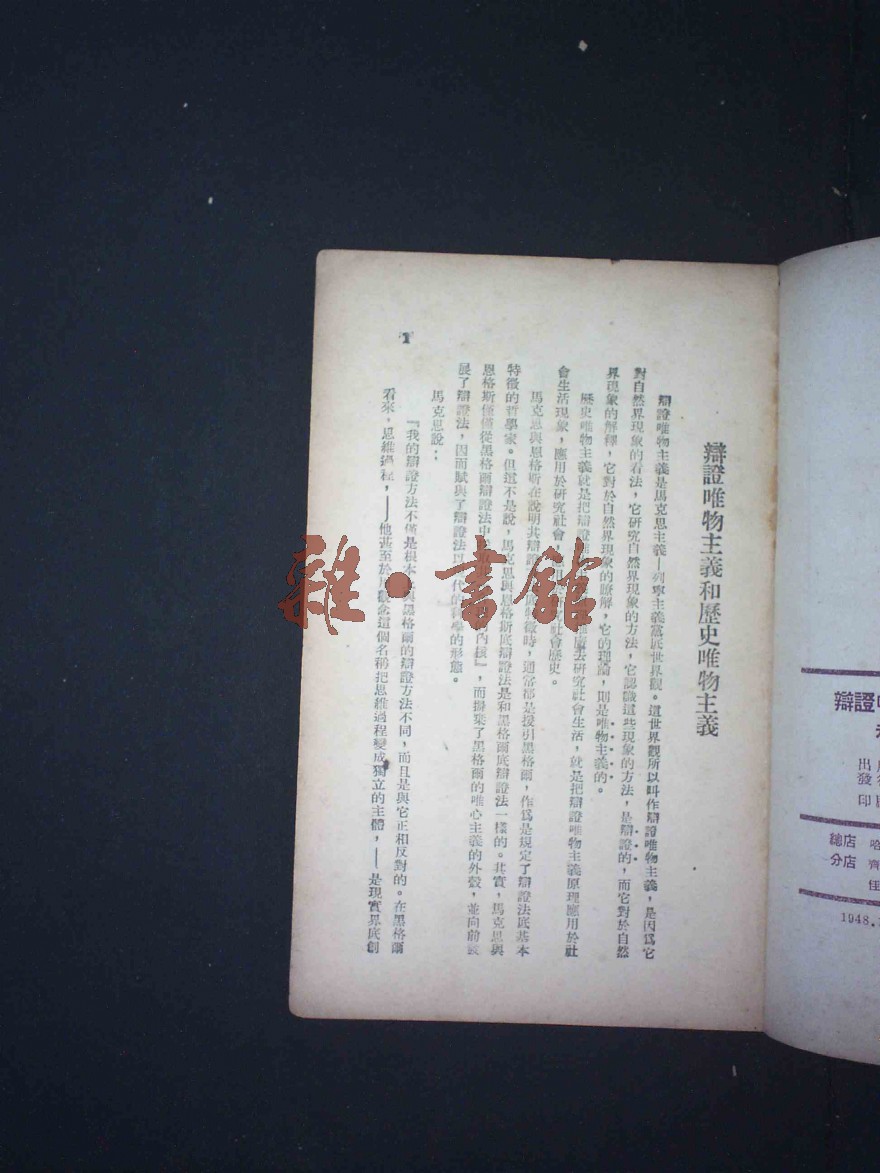 辯證唯物主義和歷史唯物主義
辯證唯物主義是馬克思主義—列寧主義黨底世界觀。這世界觀所以叫作辯證唯物主義,是因爲它
對自然界現象的看法,它研究自然界現象的方法,它認識這些現象的方法,是辯證的,而它對於自然
界現象的解釋,它對於自然界現象的瞭解,它的理論,則是唯物主義的。
歷史唯物主義就是把辯證 去研究社會生活,就是把辯證唯物主義原理應用於社
會生活現象,應用於研究社會 社會歷史。
馬克思與恩格斯在說明其辯證 特徵時,通常都是援引黑格爾,作爲是規定了辯證法底基本
特徵的哲學家。但這不是說,馬克思與恩格斯底辯證法是和黑格爾底辯證法一樣的。其實,馬克思與
恩格斯僅僅從黑格爾辯證法中 內核』,而摒棄了黑格爾的唯心主義的外殼,並向前發
展了辯證法,因而賦與了辯證法以 代的科學的形態。
馬克思說:
『我的辯證方法不僅是根本 黑格爾的辯證方法不同,而且是與它正相反對的。在黑格爾
看來,思維過程,——他甚至於 觀念這個名稱把思維過程變成獨立的主體,——是現實界底創
1
雜·書館
辯證
出
發
印
總店 哈
分店 齊
佳
1948.